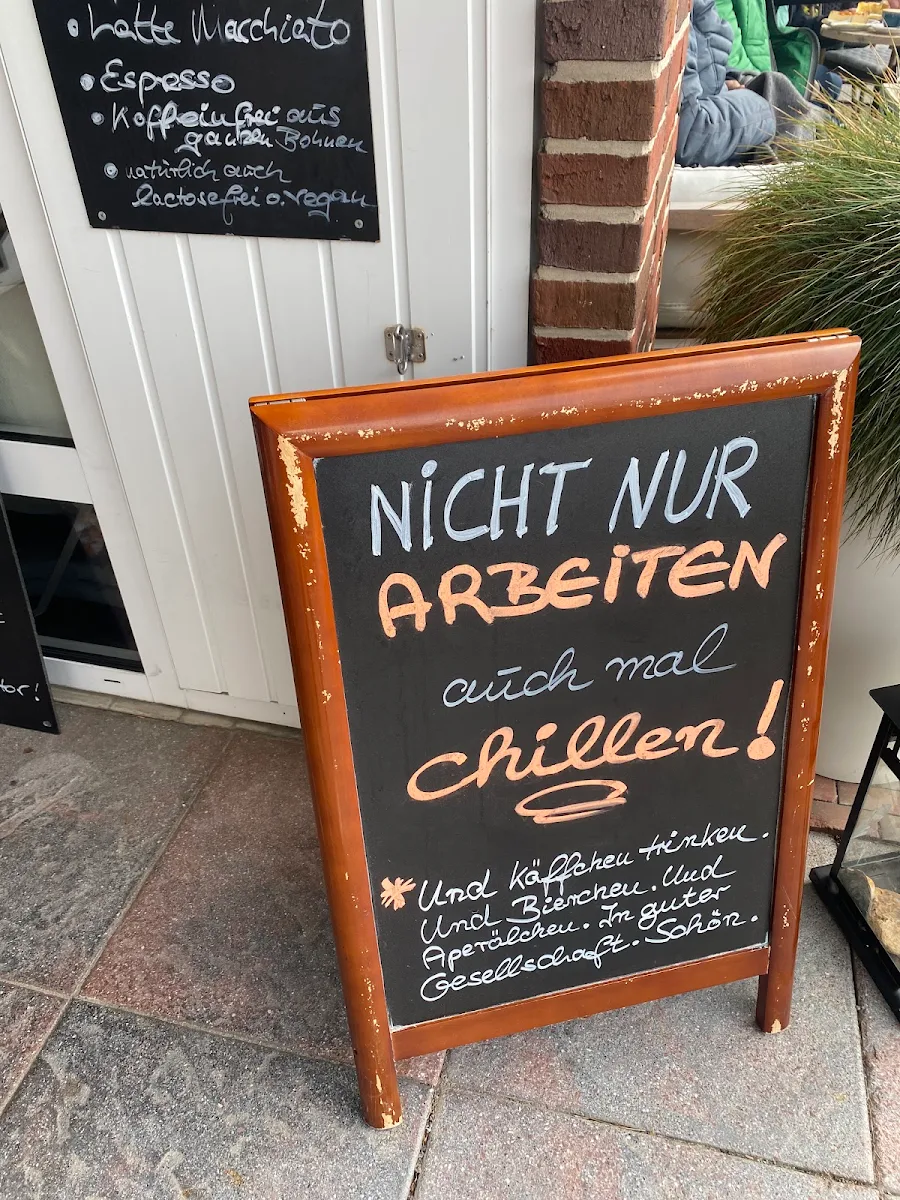 • Latte Macchiato
• Espresso
• Koffeinfrei aus
ganzen Bohnen
• natürlich auch
lactosefrei o. vegan
NiCHT NUR
ARBEiTEN
auch mal
chillen!
* Und Käffchen trinken.
Und Bierchen. Und
Aperölchen. In guter
Gesellschaft. Schön.